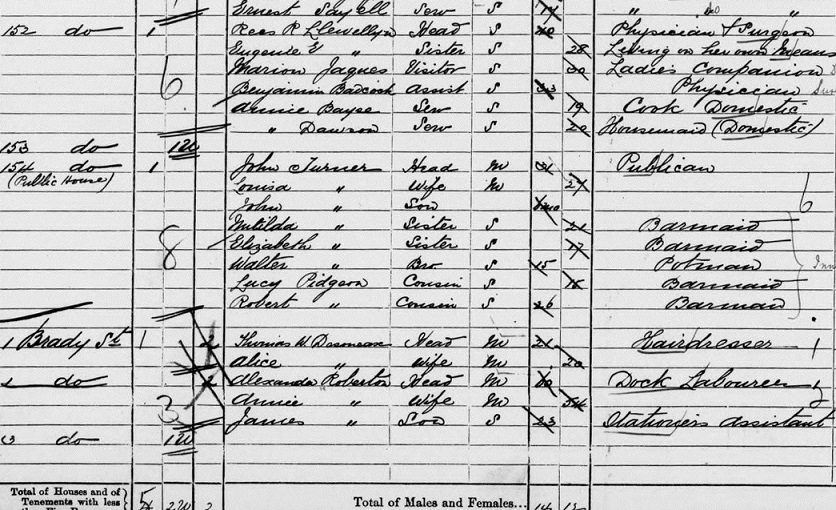 Ernest Sayell Serv S 14 " do "
152 do 1 Rees R Llewellyn Head S 40 Physician & Surgeon
Eugenie E " Sister S 28 Living on her own Means
Marion Jaques Visitor S 30 Ladies Companion
6 Benjamin Badcock Assist S 33 Physician
Annie Bayse Serv S 19 Cook Domestic
" Dawson Serv S 20 Housemaid (Domestic)
153 do 1 U
154 do 1 John Turner Head M 31 Publican
(Public House) Louisa " Wife M 27
John " Son 6
Matilda " Sister S 21 Barmaid
8 Elizabeth " Sister S 17 Barmaid
Walter " Bro S 15 Potman
Lucy Pidgeon Cousin S 16 Barmaid
Robert " Cousin S 26 Barman
1 Brady St 1 2 Thomas W Head M 21 Hairdresser
Alice " Wife M 20
1 do 2 Alexander Roberton Head M 60 Dock Labourer
3 Annie " Wife M 54
James " Son S 23 Stationers assistant
3 do 1 U
Total of Houses and of
Tenements with less 5 2 U 2 Total of Males and Females... 14 15